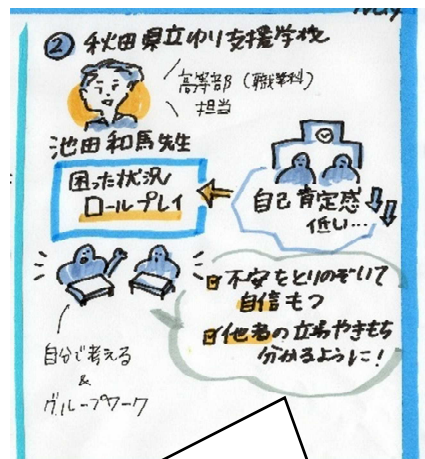 ② 秋田県立ゆり支援学校
高等部(職業科)
担当
池田和馬先生
困った状況
ロールプレイ
自己肯定感
低い…
不安をとりのぞいて
自信もつ
他者の立場やきもち
分かるように!
自分で考える
&
グループワーク